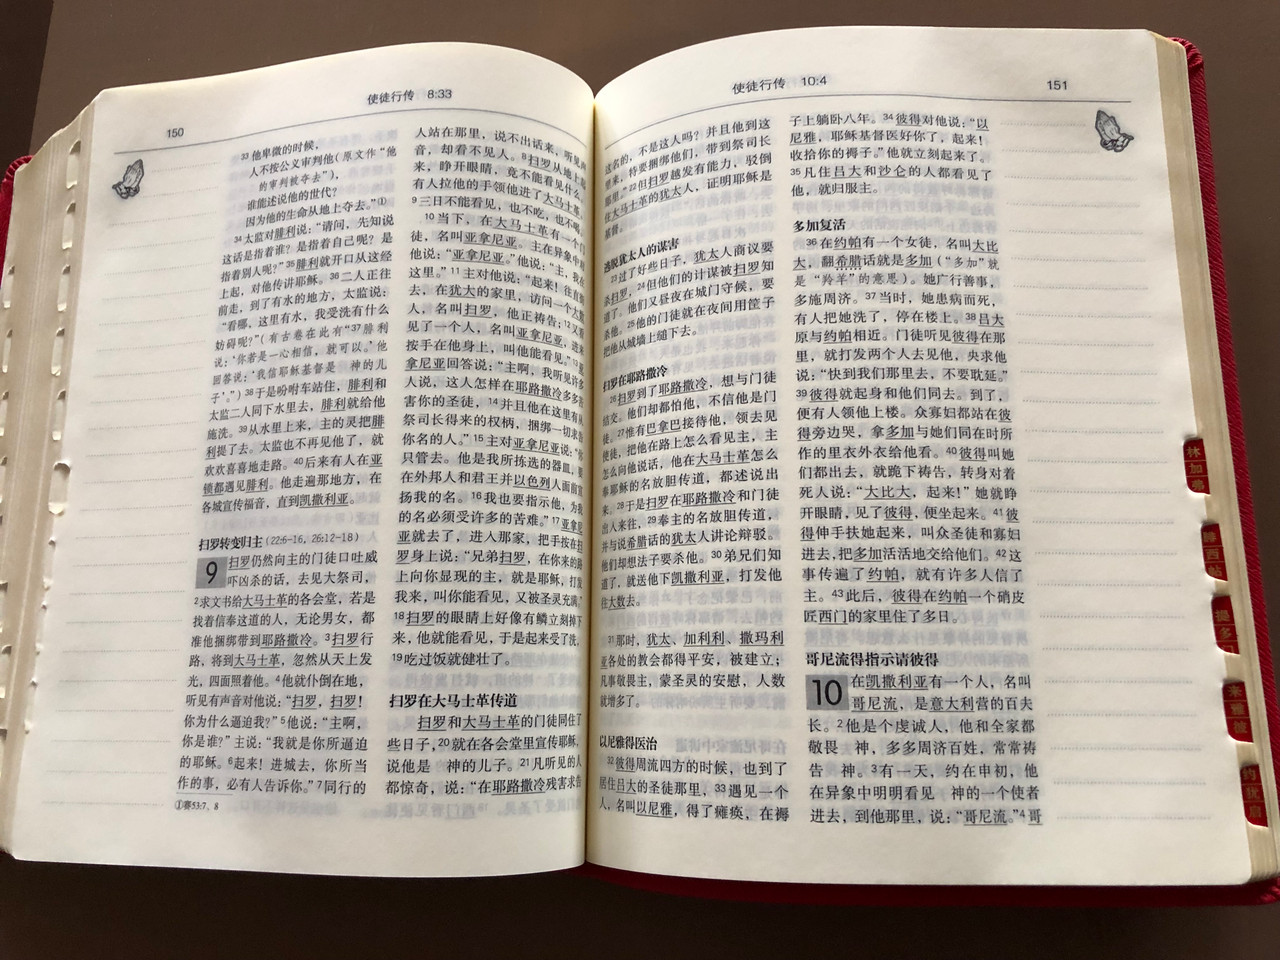 使徒行传 8:33
150
33他卑微的时候，
人不按公义审判他(原文作“他
的审判被夺去”)，
谁能述说他的世代？
因为他的生命从地上夺去。”①
34太监对腓利说：“请问，先知说
这话是指着谁？是指着自己呢？是
指着别人呢？”35腓利就开口从这经
上起，对他传讲耶稣。36二人正往
前走，到了有水的地方，太监说：
“看哪，这里有水，我受洗有什么
妨碍呢？”(有古卷在此有“37腓利
说：‘你若是一心相信，就可以。’他
回答说：‘我信耶稣基督是 神的儿
子’。”)38于是吩咐车站住，腓利和
太监二人同下水里去，腓利就给他
施洗。39从水里上来，主的灵把腓
利提了去。太监也不再见他了，就
欢欢喜喜地走路。40后来有人在亚
锁都遇见腓利。他走遍那地方，在
各城宣传福音，直到凯撒利亚。
扫罗转变归主(22:6-16, 26:12-18)
9 扫罗仍然向主的门徒口吐威
吓凶杀的话，去见大祭司，
2求文书给大马士革的各会堂，若是
找着信奉这道的人，无论男女，都
准他捆绑带到耶路撒冷。3扫罗行
路，将到大马士革，忽然从天上发
光，四面照着他。4他就仆倒在地，
听见有声音对他说：“扫罗，扫罗！
你为什么逼迫我？”5他说：“主啊，
你是谁？”主说：“我就是你所逼迫
的耶稣。6起来！进城去，你所当
作的事，必有人告诉你。”7同行的
①赛53:7、8
人站在那里，说不出话来，听见声
音，却看不见人。8扫罗从地上起
来，睁开眼睛，竟不能看见什么。
有人拉他的手领他进了大马士革。
9三日不能看见，也不吃，也不喝。
10当下，在大马士革有一个门
徒，名叫亚拿尼亚。主在异象中对
他说：“亚拿尼亚。”他说：“主，我在
这里。”11主对他说：“起来！往直街
去，在犹大的家里，访问一个大数
人，名叫扫罗，他正祷告；12又看
见了一个人，名叫亚拿尼亚，进来
按手在他身上，叫他能看见。”13亚
拿尼亚回答说：“主啊，我听见许多
人说，这人怎样在耶路撒冷多多苦
害你的圣徒，14并且他在这里有从
祭司长得来的权柄，捆绑一切求告
你名的人。”15主对亚拿尼亚说：“你
只管去。他是我所拣选的器皿，要
在外邦人和君王并以色列人面前宣
扬我的名。16我也要指示他，为我
的名必须受许多的苦难。”17亚拿尼
亚就去了，进入那家，把手按在扫
罗身上说：“兄弟扫罗，在你来的路
上向你显现的主，就是耶稣，打发
我来，叫你能看见，又被圣灵充满。”
18扫罗的眼睛上好像有鳞立刻掉下
来，他就能看见，于是起来受了洗，
19吃过饭就健壮了。
扫罗在大马士革传道
扫罗和大马士革的门徒同住了
些日子，20就在各会堂里宣传耶稣，
说他是 神的儿子。21凡听见的人
都惊奇，说：“在耶路撒冷残害求告
使徒行传 10:4
151
这名的，不是这人吗？并且他到这
里来，特要捆绑他们，带到祭司长
那里。”22但扫罗越发有能力，驳倒
住大马士革的犹太人，证明耶稣是
基督。
逃脱犹太人的谋害
23过了好些日子，犹太人商议要
杀扫罗，24但他们的计谋被扫罗知
道了。他们又昼夜在城门守候，要
杀他。25他的门徒就在夜间用筐子
把他从城墙上缒下去。
扫罗在耶路撒冷
26扫罗到了耶路撒冷，想与门徒
结交。他们却都怕他，不信他是门
徒。27惟有巴拿巴接待他，领去见
使徒，把他在路上怎么看见主，主
怎么向他说话，他在大马士革怎么
奉耶稣的名放胆传道，都述说出
来。28于是扫罗在耶路撒冷和门徒
出入来往，29奉主的名放胆传道，
并与说希腊话的犹太人讲论辩驳。
他们却想法子要杀他。30弟兄们知
道了，就送他下凯撒利亚，打发他
往大数去。
31那时，犹太、加利利、撒玛利
亚各处的教会都得平安，被建立；
凡事敬畏主，蒙圣灵的安慰，人数
就增多了。
以尼雅得医治
32彼得周流四方的时候，也到了
居住吕大的圣徒那里，33遇见一个
人，名叫以尼雅，得了瘫痪，在褥
子上躺卧八年。34彼得对他说：“以
尼雅，耶稣基督医好你了，起来！
收拾你的褥子。”他就立刻起来了。
35凡住吕大和沙仑的人都看见了
他，就归服主。
多加复活
36在约帕有一个女徒，名叫大比
大，翻希腊话就是多加(“多加”就
是“羚羊”的意思)。她广行善事，
多施周济。37当时，她患病而死，
有人把她洗了，停在楼上。38吕大
原与约帕相近。门徒听见彼得在那
里，就打发两个人去见他，央求他
说：“快到我们那里去，不要耽延。”
39彼得就起身和他们同去。到了，
便有人领他上楼。众寡妇都站在彼
得旁边哭，拿多加与她们同在时所
作的里衣外衣给他看。40彼得叫她
们都出去，就跪下祷告，转身对着
死人说：“大比大，起来！”她就睁
开眼睛，见了彼得，便坐起来。41彼
得伸手扶她起来，叫众圣徒和寡妇
进去，把多加活活地交给他们。42这
事传遍了约帕，就有许多人信了
主。43此后，彼得在约帕一个硝皮
匠西门的家里住了多日。
哥尼流得指示请彼得
10 在凯撒利亚有一个人，名叫
哥尼流，是意大利营的百夫
长。2他是个虔诚人，他和全家都
敬畏 神，多多周济百姓，常常祷
告 神。3有一天，约在申初，他
在异象中明明看见 神的一个使者
进去，到他那里，说：“哥尼流。”4哥
林
加
弗
腓
西
帖
提
多
来
雅
彼
约
犹
启